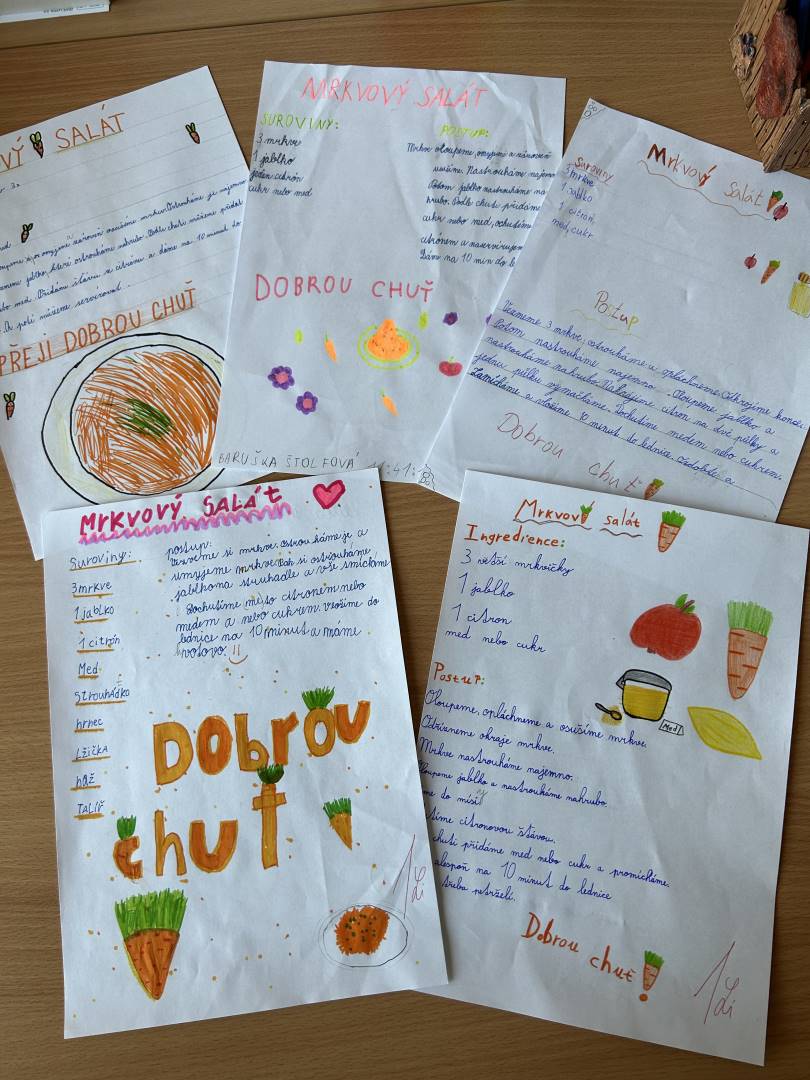 VÝ SALÁT
ještě ostrouháme, ostrouháme je najemno
jablko, které ostrouháme nahrubo. Podle chuti můžeme přidat
med. Přidáme šťávu z citrónu a dáme na 10 minut do
A poté můžeme servírovat.
PŘEJI DOBROU CHUŤ
MRKVOVÝ SALÁT
SUROVINY:
3 mrkve
1 jablko
jeden citrón
cukr nebo med
POSTUP:
Mrkve oloupeme, omyjeme a zároveň
usušíme. Nastrouháme najemno
Potom jablko nastrouháme na
hrubo. Podle chuti přidáme
cukr nebo med, ochutíme
citrónem a naservírujem
Dáme na 10 min do le
DOBROU CHUŤ
BARUŠKA ŠTOLFOVÁ
Mrkvový Salát
Suroviny
3 mrkve
1 jablko
1 citron
med, cukr
Postup
Vezmeme 3 mrkve, ostrouháme a opláchneme. Odkrojíme konce.
Potom nastrouháme najemno. Oloupeme jablko a
nastrouháme nahrubo. Nakrojíme citron na dvě půlky a
jednu půlku vymačkáme. Dochutíme medem nebo cukrem.
Zamícháme a vložíme 10 minut do lednice. Ozdobíte a
Dobrou chuť
Mrkvový SALÁt
Suroviny:
3 mrkve
1 jablko
1 citrón
Med
Strouhádko
hrnec
Lžička
nůž
TALíř
postup:
Vezmeme si mrkve. ostrouháme je a
umyjeme mrkve. pak si ostrouháme
jablko na struhadle a vše smícháme
Dochutíme míšto citronem nebo
medem a nebo cukrem. vložíme do
lednice na 10 minut a máme
hotovo. :)
Dobrou
chuť
1
Mrkvoví salát
Ingredience:
3 větší mrkvičky
1 jablko
1 citron
med nebo cukr
Med
Postup:
Oloupeme, opláchneme a osušíme mrkve.
Odřízneme okraje mrkve.
Mrkve nastrouháme najemno.
loupeme jablko a nastrouháme nahrubo.
me do mísi
tíme citronovou šťávou.
chuti přidáme med nebo cukr a promícháme.
alespoň na 10 minut do lednice
třeba petrželí.
Dobrou chuť!
1